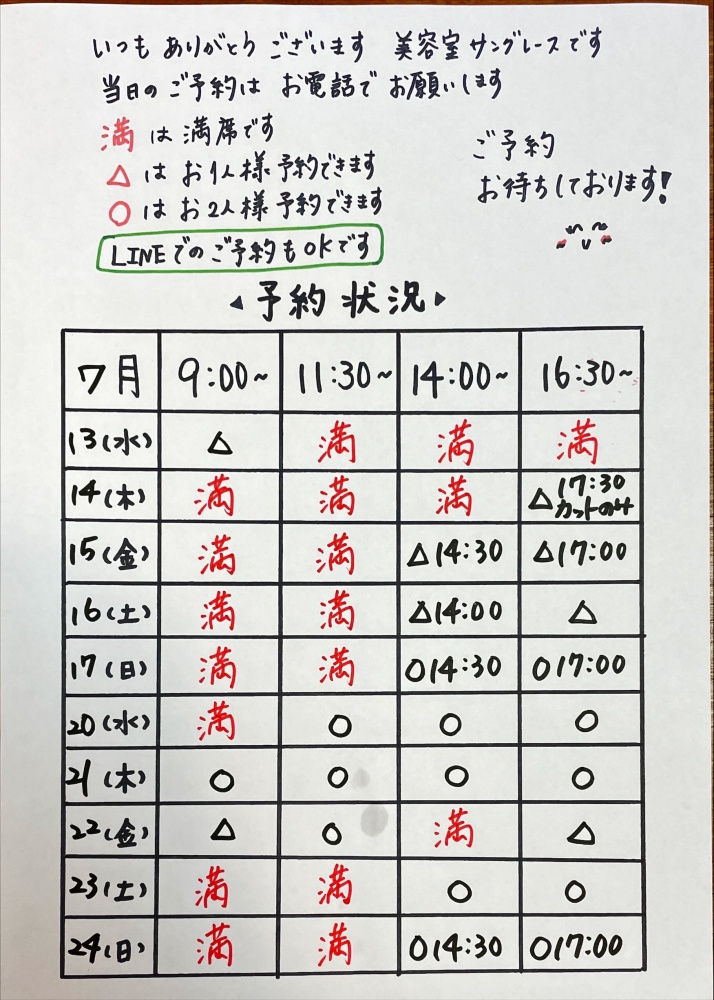 いつも ありがとう ございます 美容室 サングレースです
当日の ご予約は お電話で お願いします
満 は 満席です
△ は お1人様 予約できます
○ は お2人様 予約できます
LINEでの ご予約も OKです
ご予約
お待ちしております!
◂ 予約 状況 ▸
7月 9:00~ 11:30~ 14:00~ 16:30~
13(水) △ 満 満 満
14(木) 満 満 満 △17:30 カットのみ
15(金) 満 満 △14:30 △17:00
16(土) 満 満 △14:00 △
17(日) 満 満 ○14:30 ○17:00
20(水) 満 ○ ○ ○
21(木) ○ ○ ○ ○
22(金) △ ○ 満 △
23(土) 満 満 ○ ○
24(日) 満 満 ○14:30 ○17:00